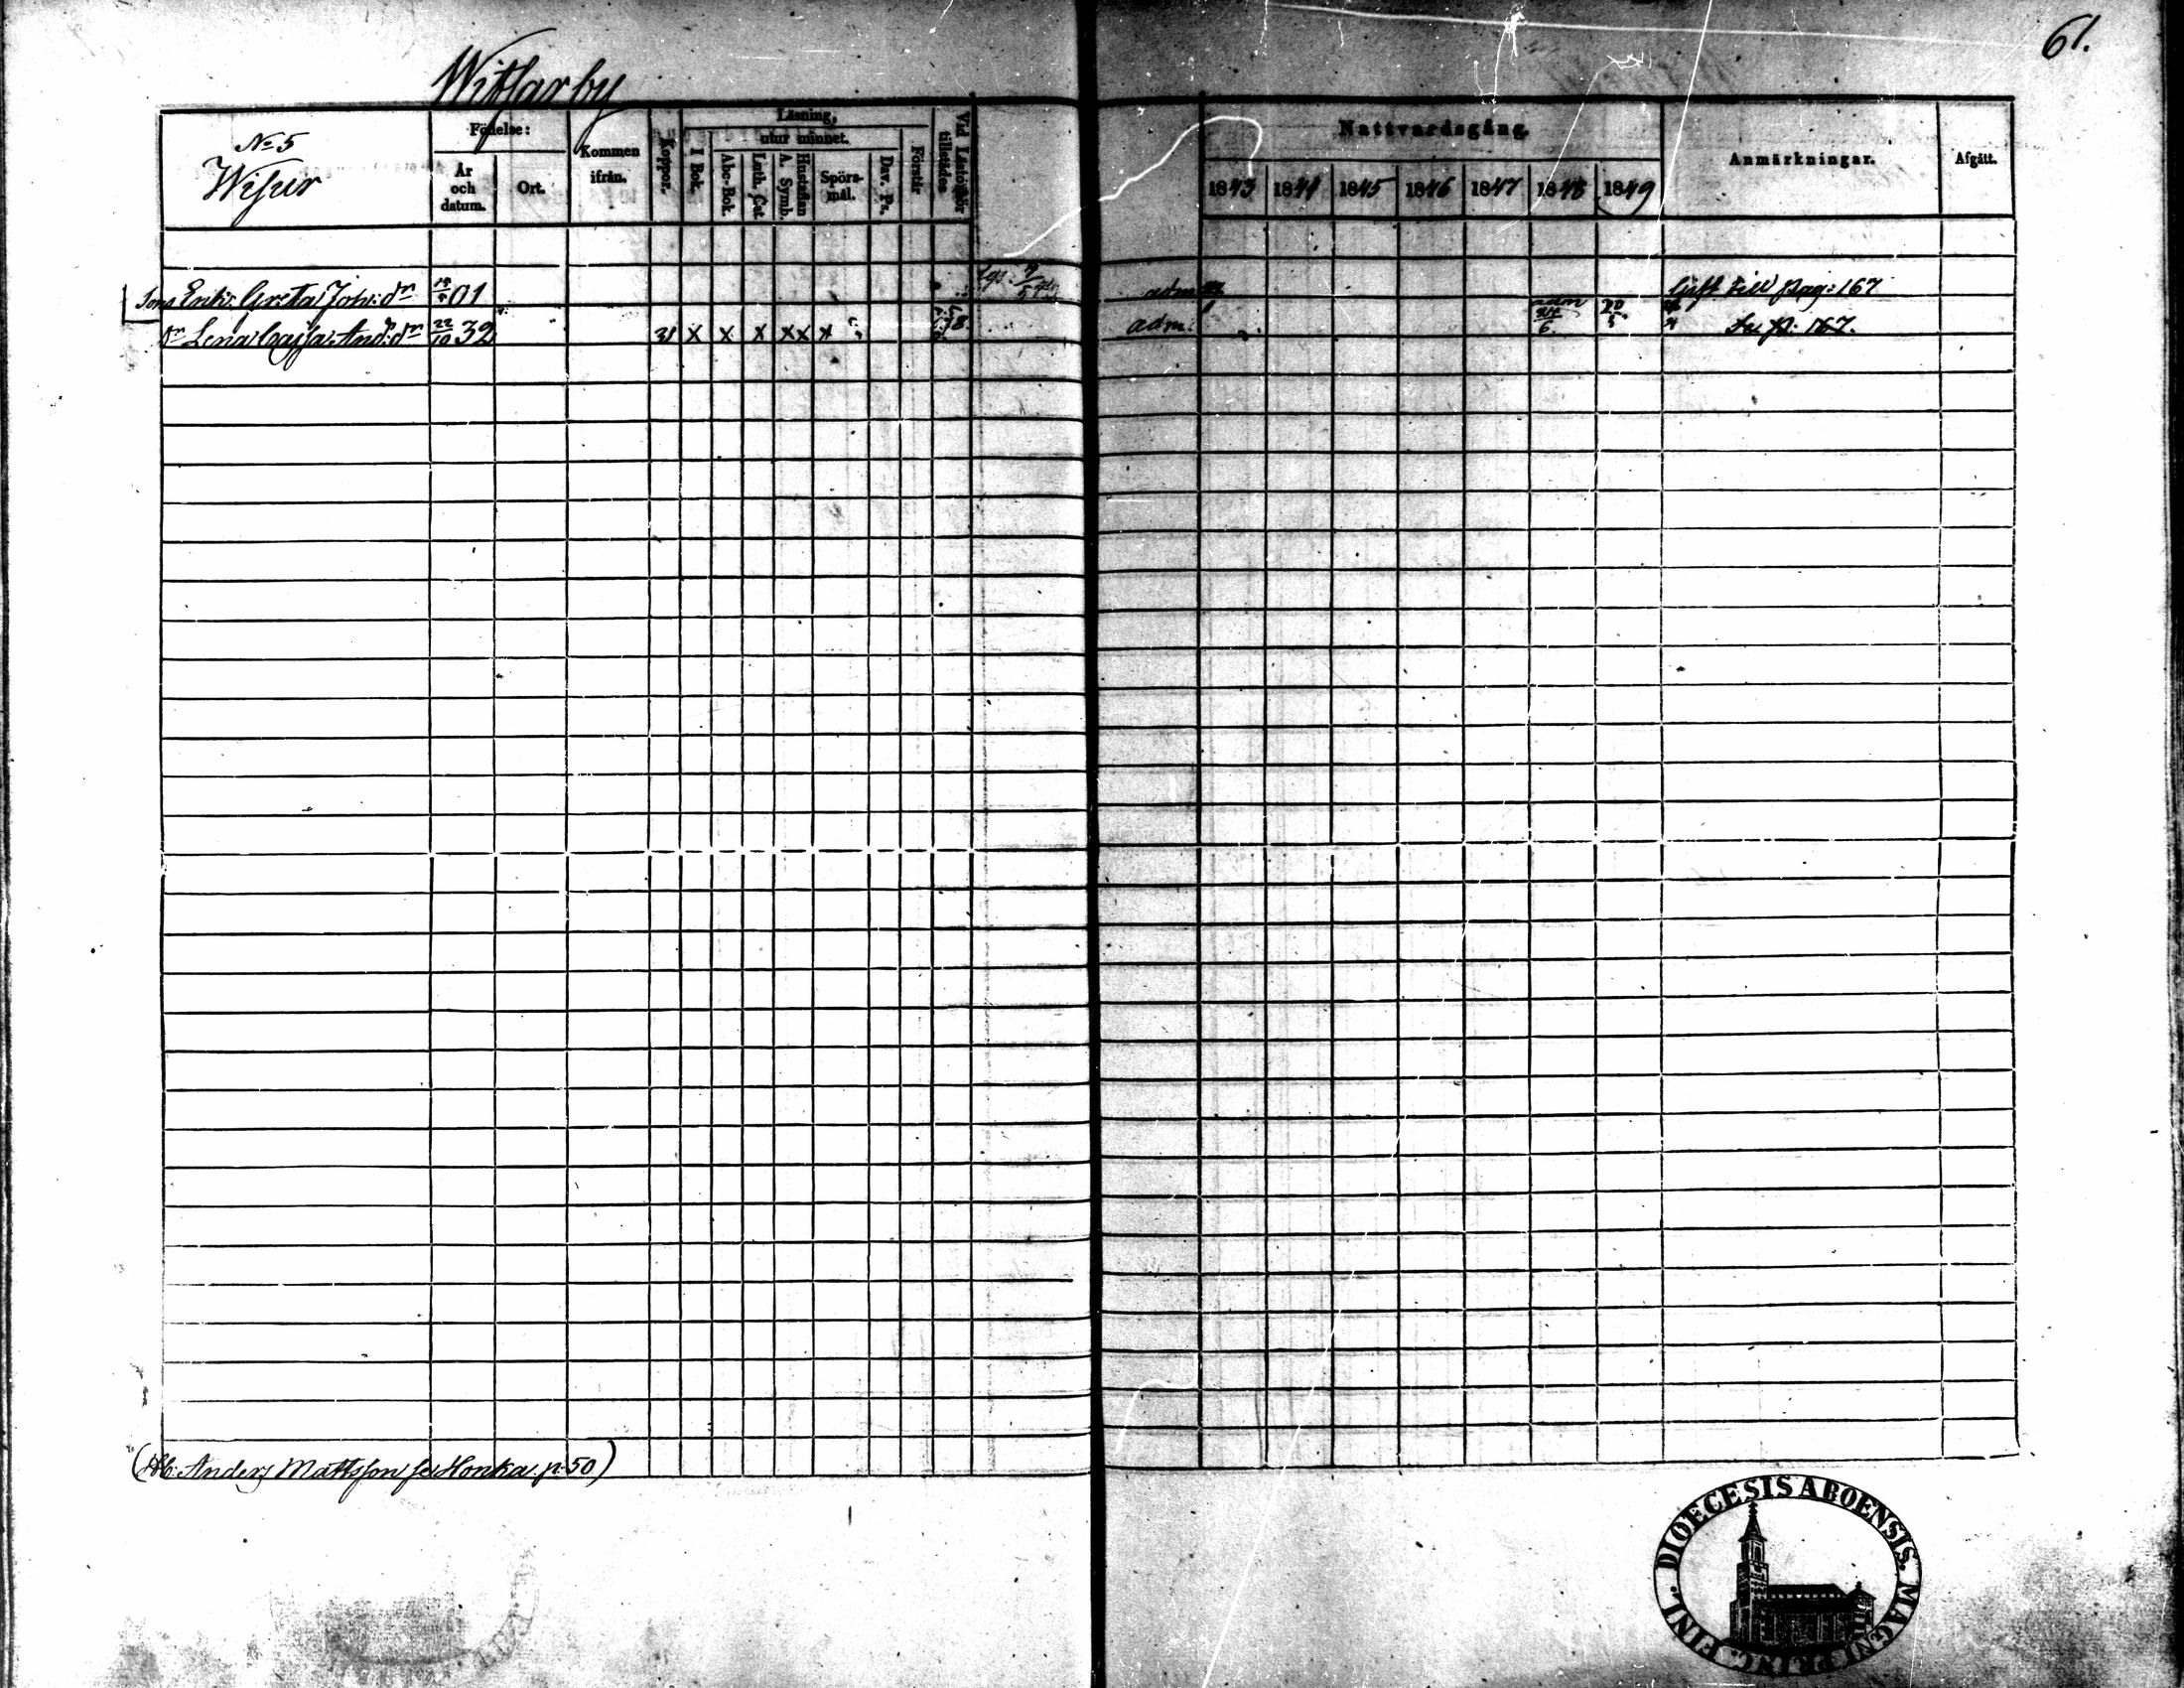 61.
Witsarby
No 5
Wisur
Födelse:
År och datum.
Ort.
Kommen ifrån.
Koppor.
Läsning,
utur minnet.
I Bok.
Abc-Bok.
Luth. Cat.
Hustaflan A. Symb.
Spörs-mål.
Dav. Ps.
Förstår
Vid Läseförhör tillstädes
Nattvardsgång.
1843 1844 1845 1846 1847 1848 1849
Anmärkningar.
Afgått.
Sons Enka Greta Joh: dr 01 adm. flytt till pag: 167
dr Lena Cajsa And: dr 22/10 32 x x x x x x adm: adm 24/6. 20/5 Se p: 167.
(Hb: Anders Mattsson se Honka p. 50)
DIOECESIS ABOENSIS. MAGNI PRINC. FINL.